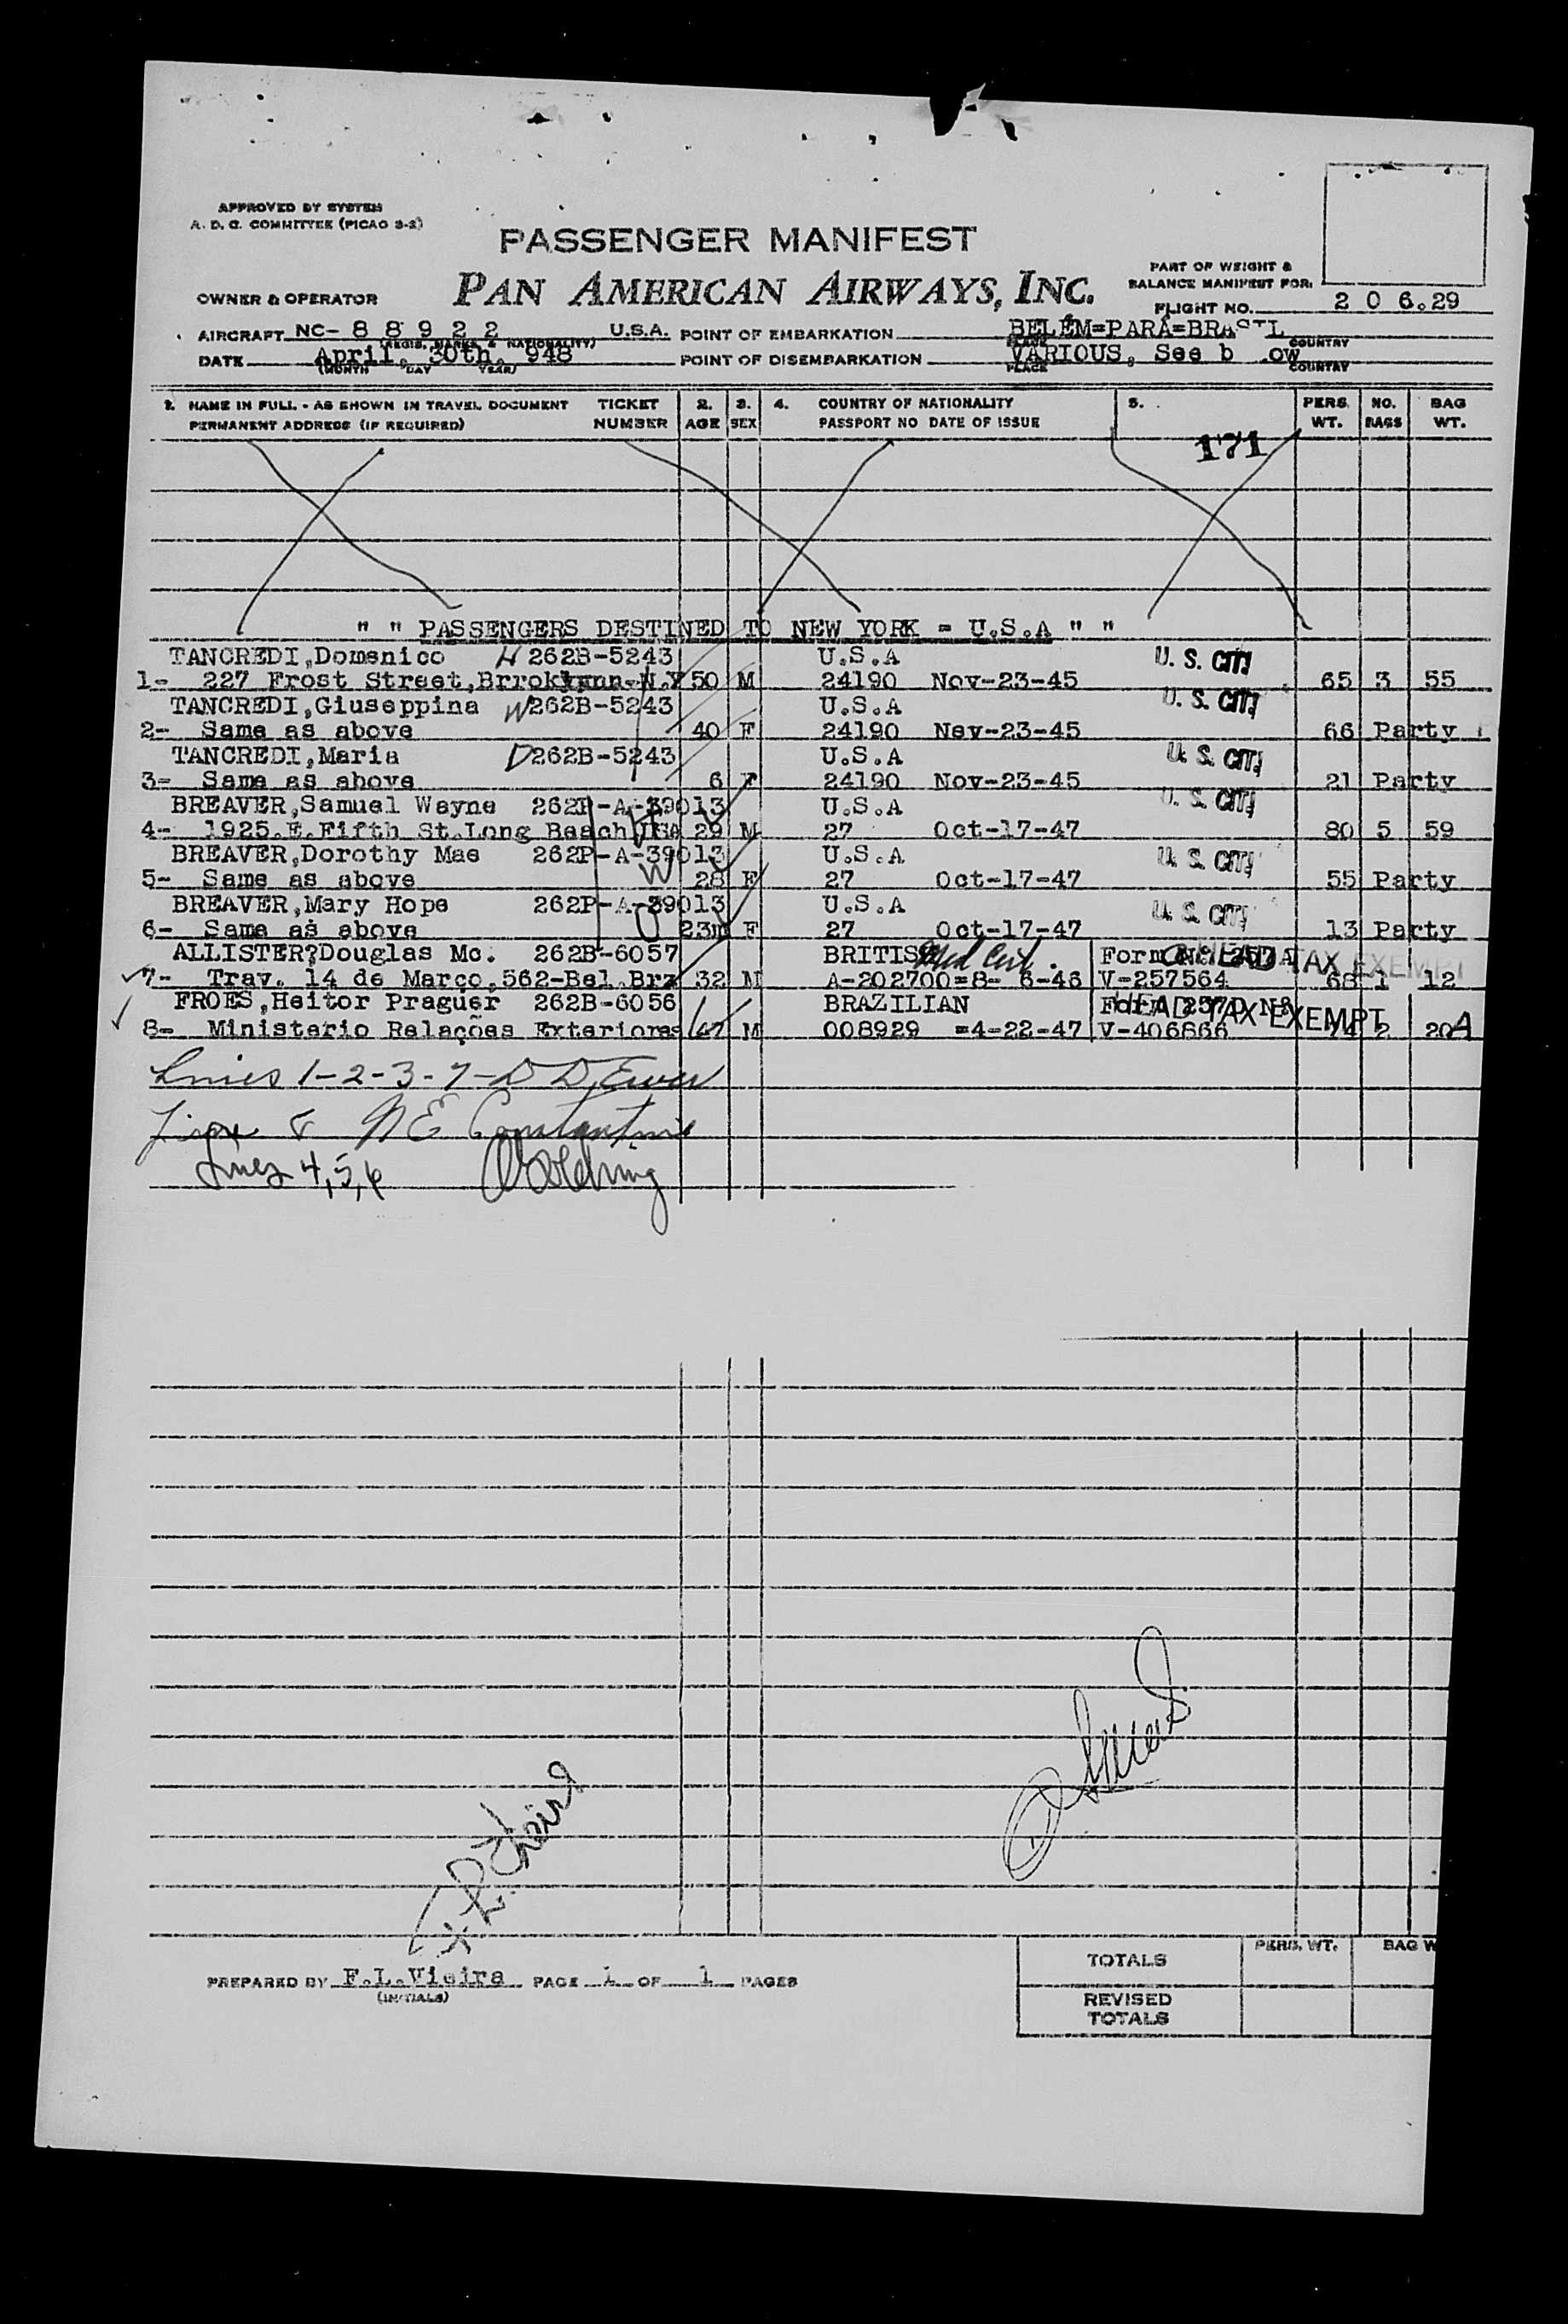 APPROVED BY SYSTEM
A. D. C. COMMITTEE (PICAO 3-2)
PASSENGER MANIFEST
PAN AMERICAN AIRWAYS, INC.
OWNER & OPERATOR
PART OF WEIGHT &
BALANCE MANIFEST FOR:
FLIGHT NO. 2 0 6.29
AIRCRAFT NC- 8 8 9 2 2 U.S.A. POINT OF EMBARKATION BELÉM=PARÁ=BRASIL
(REGIS. MARKS & NATIONALITY) PLACE COUNTRY
DATE April, 30th, 948 POINT OF DISEMBARKATION VARIOUS, See b ow
(MONTH DAY YEAR) PLACE COUNTRY
1. NAME IN FULL - AS SHOWN IN TRAVEL DOCUMENT TICKET 2. 3. 4. COUNTRY OF NATIONALITY 5. PERS. NO. BAG
PERMANENT ADDRESS (IF REQUIRED) NUMBER AGE SEX PASSPORT NO DATE OF ISSUE WT. BAGS WT.
171
" " PASSENGERS DESTINED TO NEW YORK = U.S.A " "
TANCREDI,Domenico 262B-5243 U.S.A U. S. CIT.
1- 227 Frost Street,Brroklynn-N.Y 50 M 24190 Nov-23-45 65 3 55
TANCREDI,Giuseppina W 262B-5243 U.S.A U. S. CIT.
2- Same as above 40 F 24190 Nov-23-45 66 Party
TANCREDI,Maria D 262B-5243 U.S.A U. S. CIT.
3- Same as above 6 F 24190 Nov-23-45 21 Party
BREAVER,Samuel Wayne 262P-A-39013 U.S.A U. S. CIT.
4- 1925.E.Fifth St.Long Beach USA 29 M 27 Oct-17-47 80 5 59
BREAVER,Dorothy Mae 262P-A-39013 U.S.A U. S. CIT.
W
5- Same as above 28 F 27 Oct-17-47 55 Party
BREAVER,Mary Hope 262P-A-39013 U.S.A U. S. CIT.
6- Same as above 23m F 27 Oct-17-47 13 Party
ALLISTER?Douglas Mc. 262B-6057 BRITISH Med Cert. Form 257A HEAD TAX EXEMPT
7- Trav. 14 de Março,562-Bel.Brz 32 M A-202700=8- 6-46 V-257564 68 1 12
FROES,Heitor Praguer 262B-6056 BRAZILIAN Form 257 Nº HEAD TAX EXEMPT
8- Ministerio Relações Exteriores 47 M 008929 =4-22-47 V-406866 74 2 20 A
Lines 1-2-3-7-
Line 8 N E Constantine
Lines 4,5,6
PREPARED BY F.L.Vieira PAGE 1 OF 1 PAGES
(INITIALS)
TOTALS PERS. WT. BAG W
REVISED
TOTALS